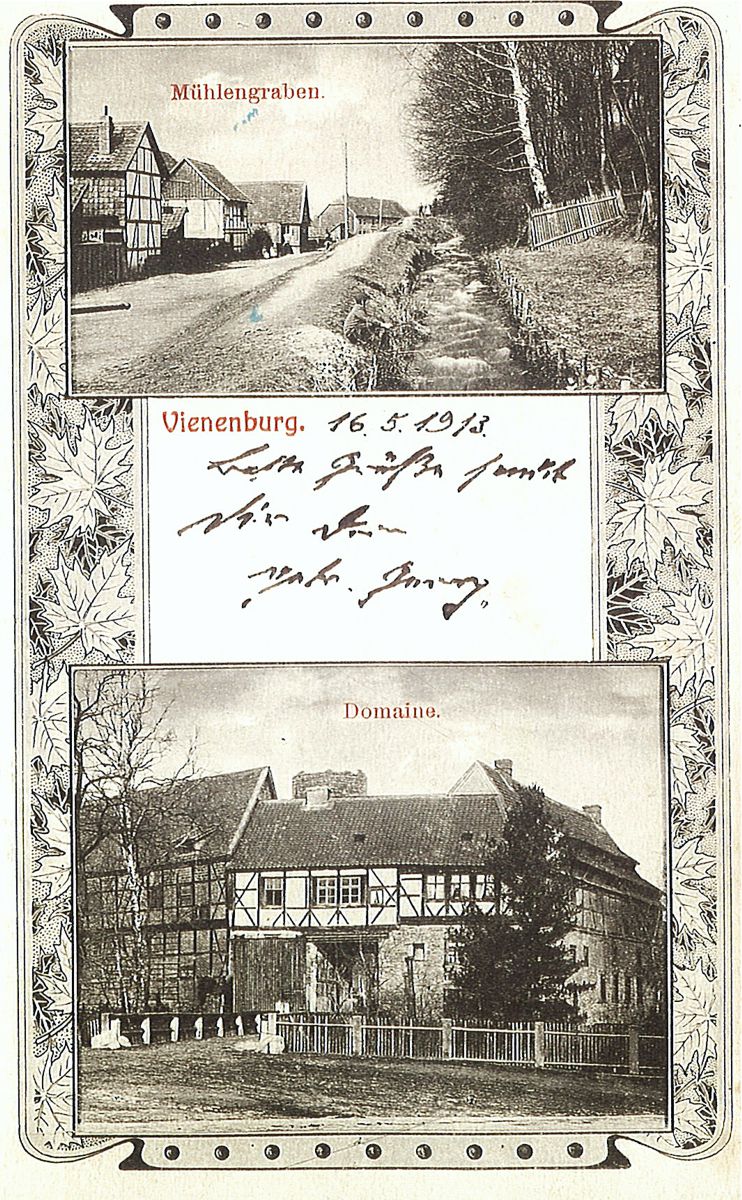 Mühlengraben.
Vienenburg. 16. 5. 1913.
Beste Grüße sendet
Dir Dein
Domaine.